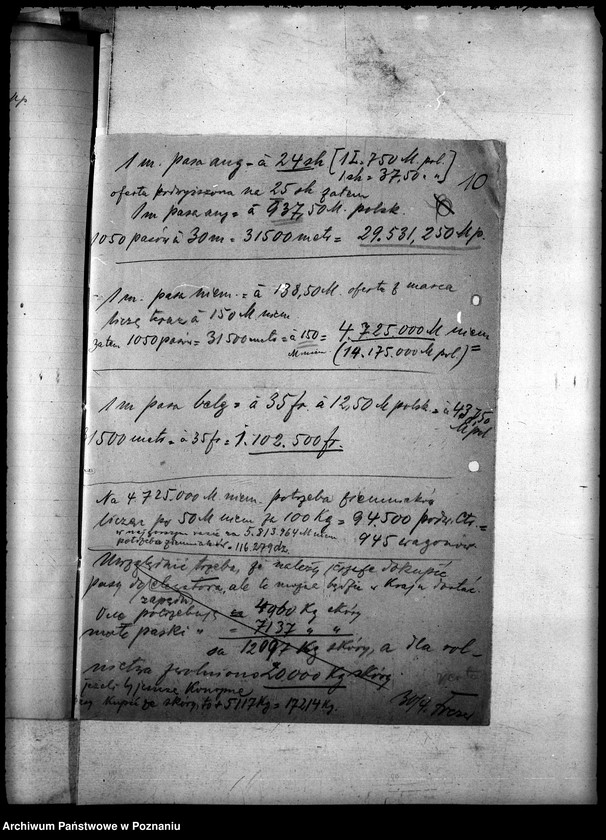 Mp.
10
1 m. pasa ang = à 24 sh [1£. 750 M. pol.]
1 sh = 37,50 " "
oferta podwyższona na 25 sh zatem
1 m pasa ang = à 937,50 M. polsk.
1050 pasów à 30 m = 31500 mets = 29.531,250 Mp.
1 m. pasa niem. = à 138,50 M. oferta z marca
liczę teraz à 150 M niem
zatem 1050 pasów = 31500 mets = à 150 = 4.725.000 M niem
M niem (14.175.000 M pol.) =
1 m pasa belg = à 35 fr. à 12,50 M polsk = à 43750 M pol
31500 mets = à 35 fr = 1.102.500 fr.
Na 4.725.000 M niem. potrzeba ziemniaków
licząc po 50 M niem za 100 Kg = 94.500 podw. Ctr. =
w najgorszym razie za 5.813.964 M niem 945 wagonów
potrzeba ziemniaków = 116.279 dz.
Uwzględnić trzeba, że należy jeszcze dokupić
pasy do elewatora, ale te może będzie w Kraju dostać.
zapędu
potrzebuję = 4960 Kg skóry
małe paski " = 7137 " "
sa 12097 Kg skóry, a dla rol-
nictwa zwolniono 20000 Kg skóry
jeżeli
kupić za skóry, to + 5117 Kg = 17214 Kg.
30/4.
Archiwum Państwowe w Poznaniu